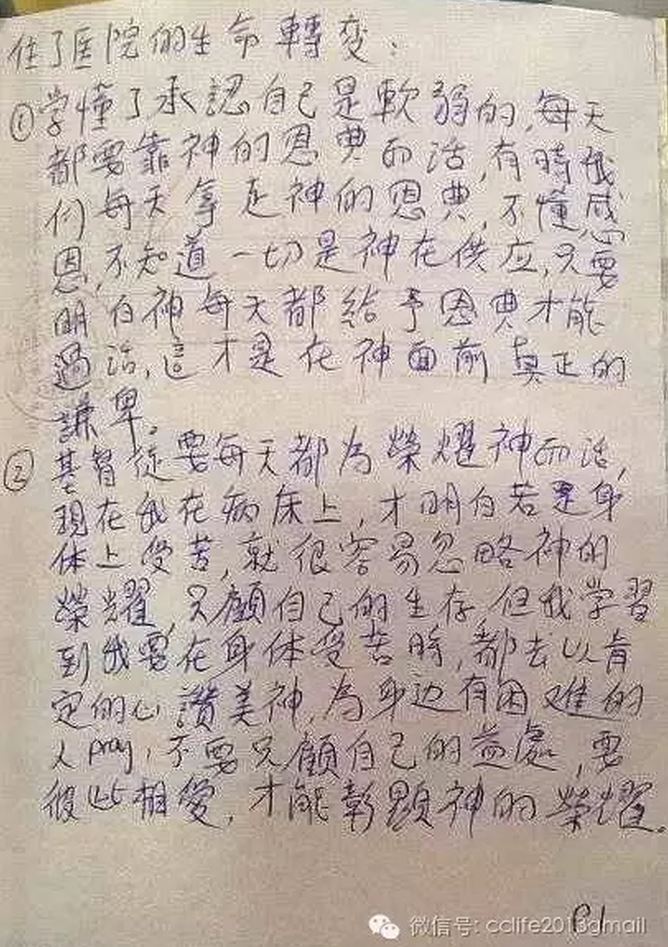 住了医院的生命轉变：
①学懂了承認自己是軟弱的,每天
都要靠神的恩典而活,有時我
们每天拿走神的恩典,不懂感
恩,不知道一切是神在供应,只要
明白神每天都給予恩典才能
過活,這才是在神面前真正的
謙卑。
②基督徒要每天都为榮耀神而活,
現在我在病床上,才明白若是身
体上受苦,就很容易忽略神的
榮耀,只顧自己的生存,但我学習
到我要在身体受苦時,都去以肯
定的心讚美神,為身边有困难的
人pray,不要只顧自己的益處,要
彼此相愛,才能彰顯神的榮耀。
P.1
微信号: cclife2013gmail